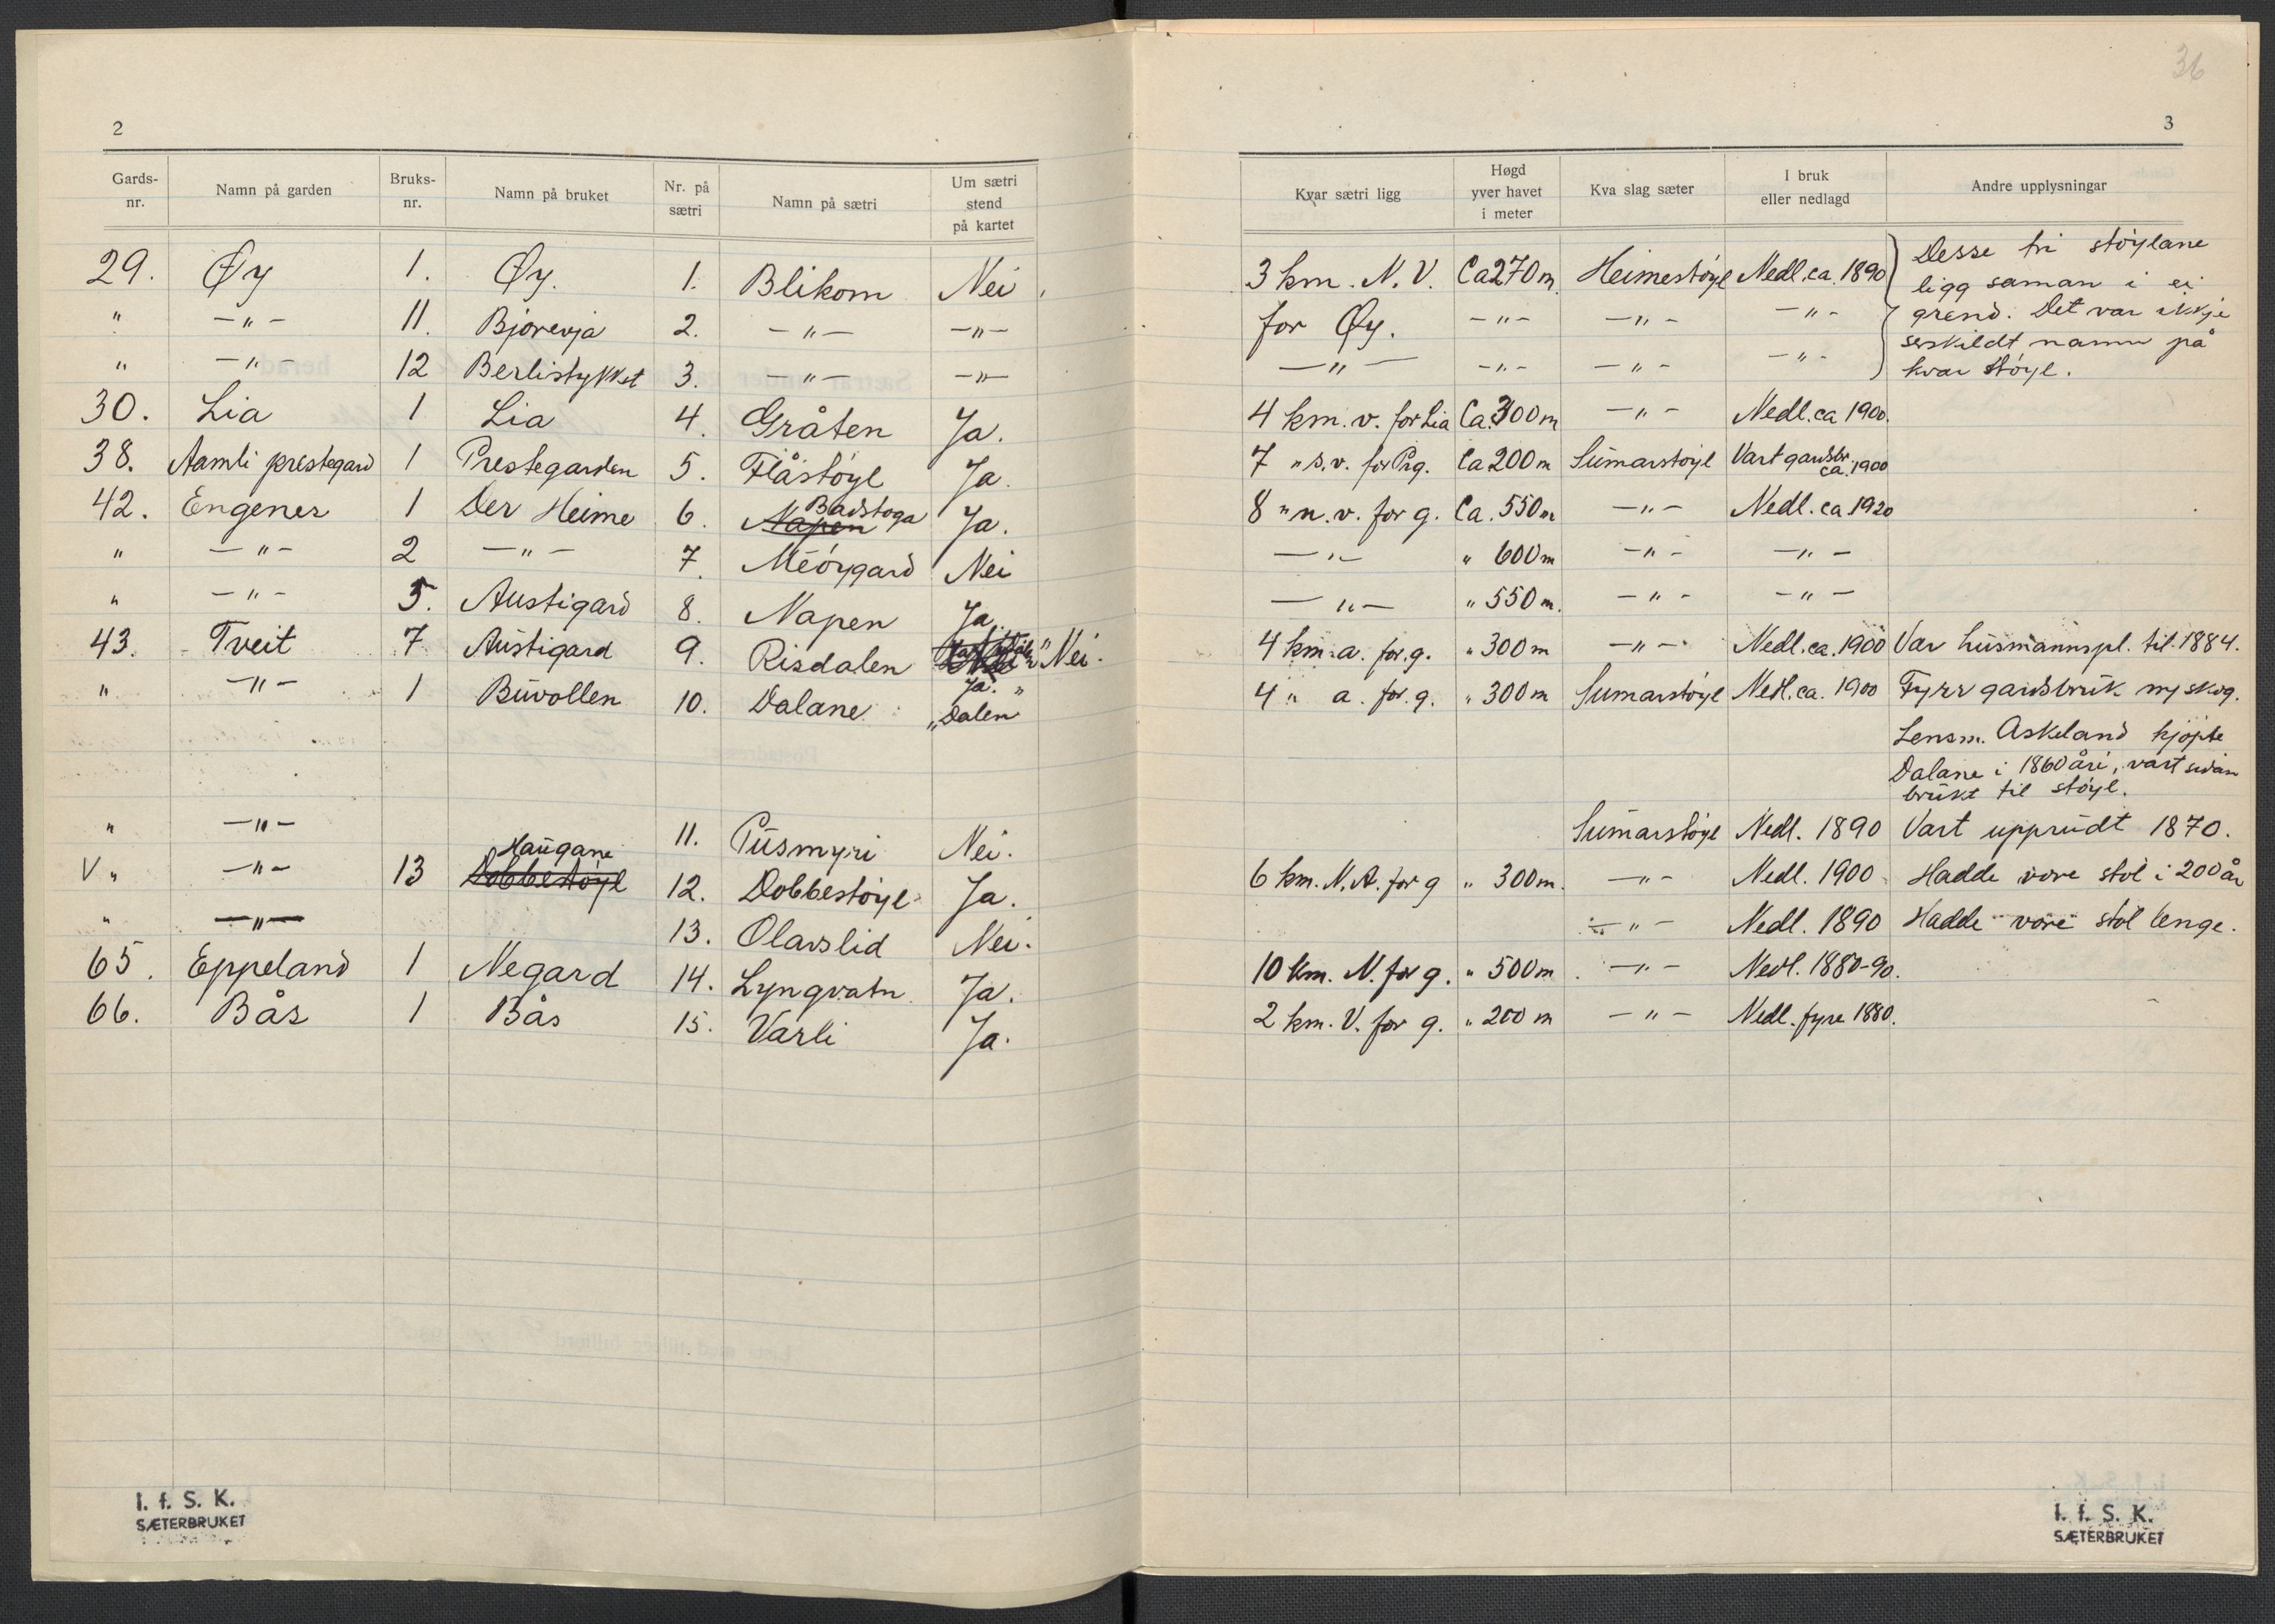 36
2
3
Gards-nr. Namn på garden Bruks-nr. Namn på bruket Nr. på sætri Namn på sætri Um sætri stend på kartet
29. Øy 1. Øy. 1. Blikom Nei
" —"— 11. Bjorevja 2. —"— —"—
" —"— 12 Berlistykket 3. —"— —"—
30. Lia 1 Lia 4. Gråten Ja.
38. Aamli prestegard 1 Prestegarden 5. Flåstøyl Ja.
42. Engenes 1 Der Heime 6. Napen Badstoga Ja.
" —"— 2 —"— 7. Meøygard Nei
" —"— 5. Austigard 8. Napen Ja.
43. Tveit 7 Austigard 9. Risdalen Nei.
" —"— 1 Buvollen 10. Dalane Ja. "Dalen"
" —"— 11. Pusmyri Nei.
V " —"— 13 Dobbestøyl Haugane 12. Dobbestøyl Ja.
" —"— 13. Olavslid Nei.
65. Eppeland 1 Negard 14. Lyngvatn Ja.
66. Bås 1 Bås 15. Varli Ja.
I. f. S. K.
SÆTERBRUKET
Kvar sætri ligg Høgd yver havet i meter Kva slag sæter I bruk eller nedlagd Andre upplysningar
3 km. N.V. Ca 270 m. Heimestøyl Nedl. ca. 1890 Desse tri støylane
ligg saman i ei
for Øy. —"— —"— —"— grend. Det var ikkje
serskildt namn på
—"— —"— —"— —"— kvar støyl.
4 km. v. for Lia Ca. 300 m —"— Nedl. ca 1900.
7 " s.v. for Prg. Ca 200 m Sumarstøyl Vart gardsbr. ca. 1900
8 " n.v. for g. Ca. 550 m —"— Nedl. ca 1920
—"— " 600 m —"— —"—
—"— " 550 m. —"— —"—
4 km. a. for g. " 300 m —"— Nedl. ca. 1900 Var husmannspl. til 1884.
4 " a. for g. " 300 m Sumarstøyl Nedl. ca. 1900 Fyrr gardsbruk my skog.
Lensm. Askeland kjøpte
Dalane i 1860 åri, vart sidan
brukt til støyl.
Sumarstøyl Nedl. 1890 Vart upprudt 1870.
6 km. N.A. for g " 300 m. —"— Nedl. 1900 Hadde vore støl i 200 år
—"— Nedl. 1890 Hadde vore støl lenge.
10 km. N. for g. " 500 m —"— Nedl. 1880-90.
2 km. V. for g. " 200 m —"— Nedl. fyre 1880.
I. f. S. K.
SÆTERBRUKET